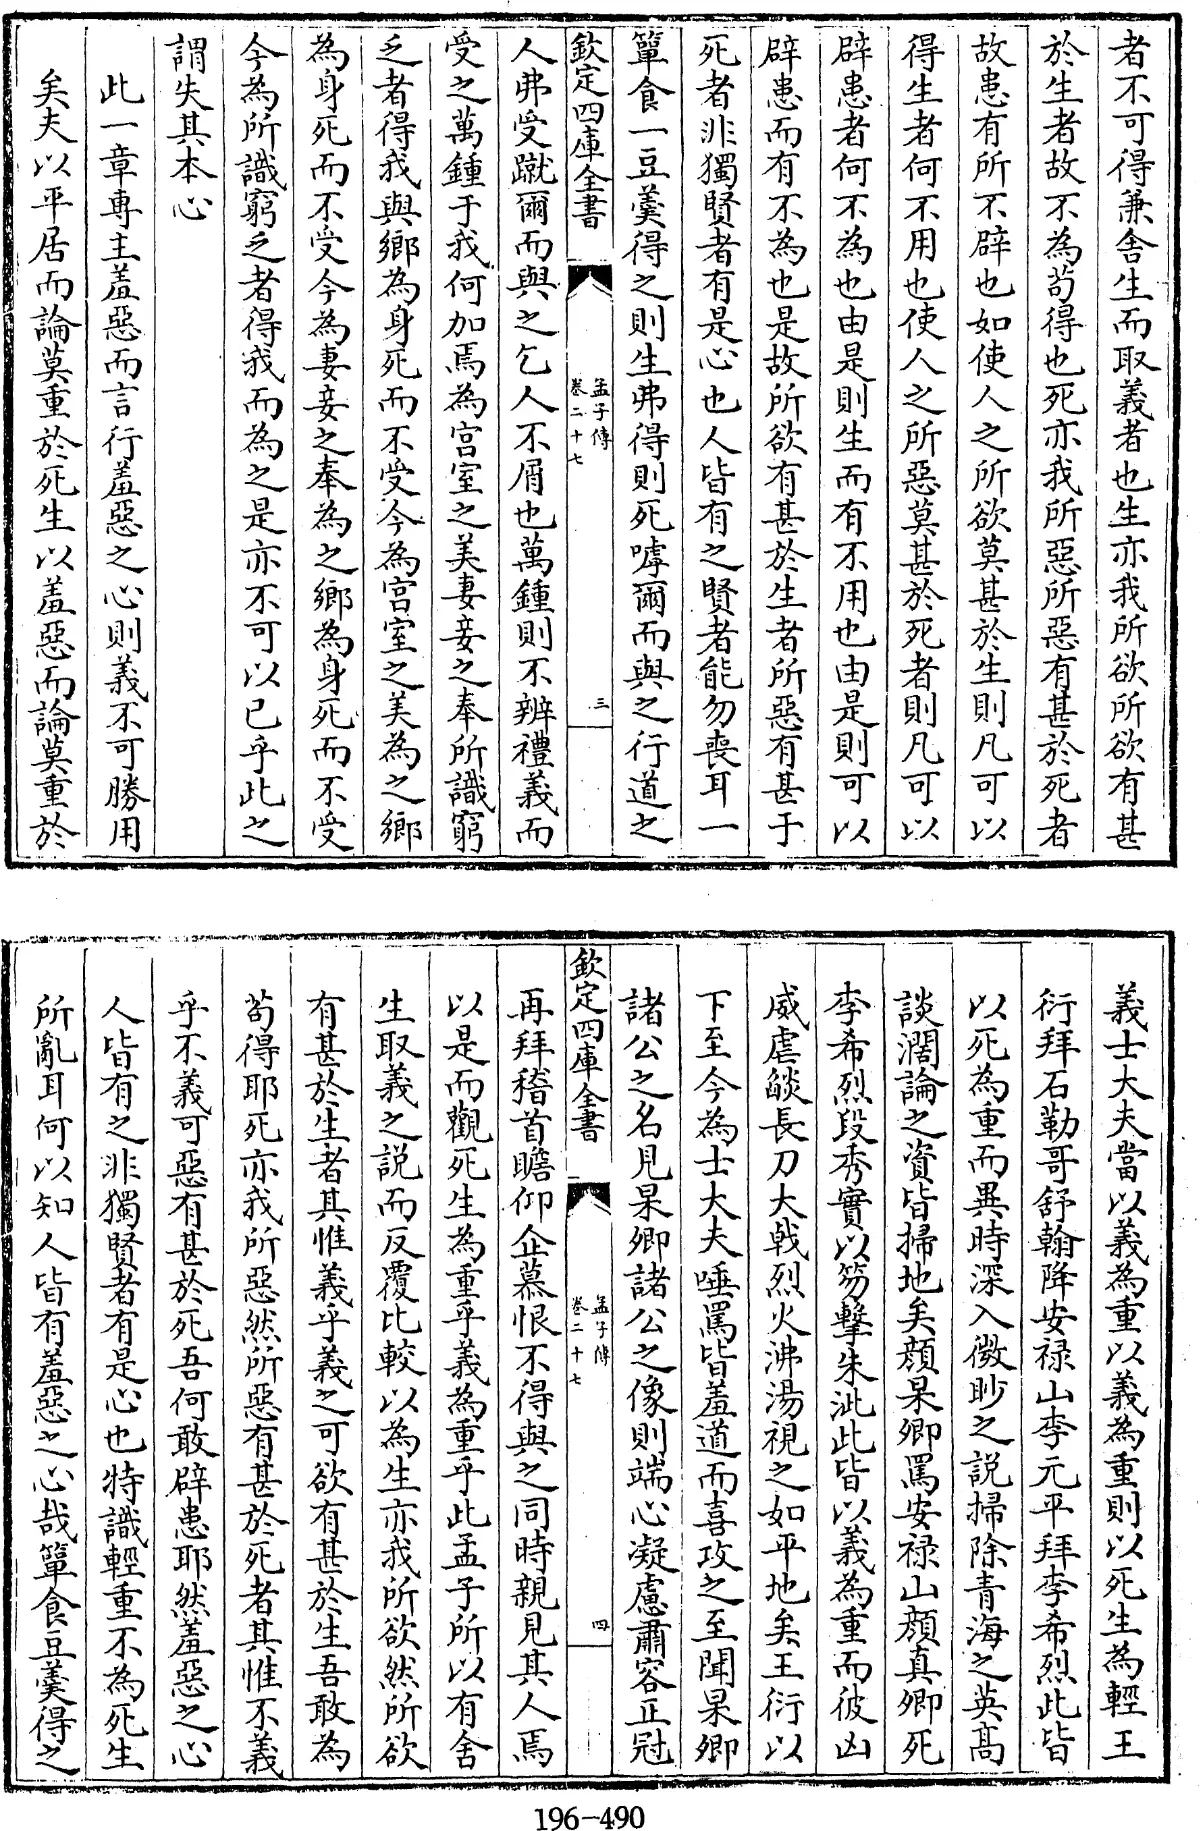 者不可得兼舍生而取義者也生亦我所欲所欲有甚
於生者故不為苟得也死亦我所惡所惡有甚於死者
故患有所不辟也如使人之所欲莫甚於生則凡可以
得生者何不用也使人之所惡莫甚於死者則凡可以
辟患者何不為也由是則生而有不用也由是則可以
辟患而有不為也是故所欲有甚於生者所惡有甚于
死者非獨賢者有是心也人皆有之賢者能勿喪耳一
簞食一豆羹得之則生弗得則死嘑爾而與之行道之
欽定四庫全書
孟子傳
卷二十七
三
人弗受蹴爾而與之乞人不屑也萬鍾則不辨禮義而
受之萬鍾于我何加焉為宮室之美妻妾之奉所識窮
乏者得我與鄉為身死而不受今為宮室之美為之鄉
為身死而不受今為妻妾之奉為之鄉為身死而不受
今為所識窮乏者得我而為之是亦不可以已乎此之
謂失其本心
此一章專主羞惡而言行羞惡之心則義不可勝用
矣夫以平居而論莫重於死生以羞惡而論莫重於
義士大夫當以義為重以義為重則以死生為輕王
衍拜石勒哥舒翰降安禄山李元平拜李希烈此皆
以死為重而異時深入微眇之説掃除青海之英髙
談濶論之資皆掃地矣顔杲卿罵安禄山顔真卿死
李希烈段秀實以笏擊朱泚此皆以義為重而彼凶
威虐燄長刀大戟烈火沸湯視之如平地矣王衍以
下至今為士大夫唾罵皆羞道而喜攻之至聞杲卿
諸公之名見杲卿諸公之像則端心凝慮肅容正冠
欽定四庫全書
孟子傳
卷二十七
四
再拜稽首瞻仰企慕恨不得與之同時親見其人焉
以是而觀死生為重乎義為重乎此孟子所以有舍
生取義之説而反覆比較以為生亦我所欲然所欲
有甚於生者其惟義乎義之可欲有甚於生吾敢為
苟得耶死亦我所惡然所惡有甚於死者其惟不義
乎不義可惡有甚於死吾何敢辟患耶然羞惡之心
人皆有之非獨賢者有是心也特識輕重不為死生
所亂耳何以知人皆有羞惡之心哉簞食豆羹得之
196-490